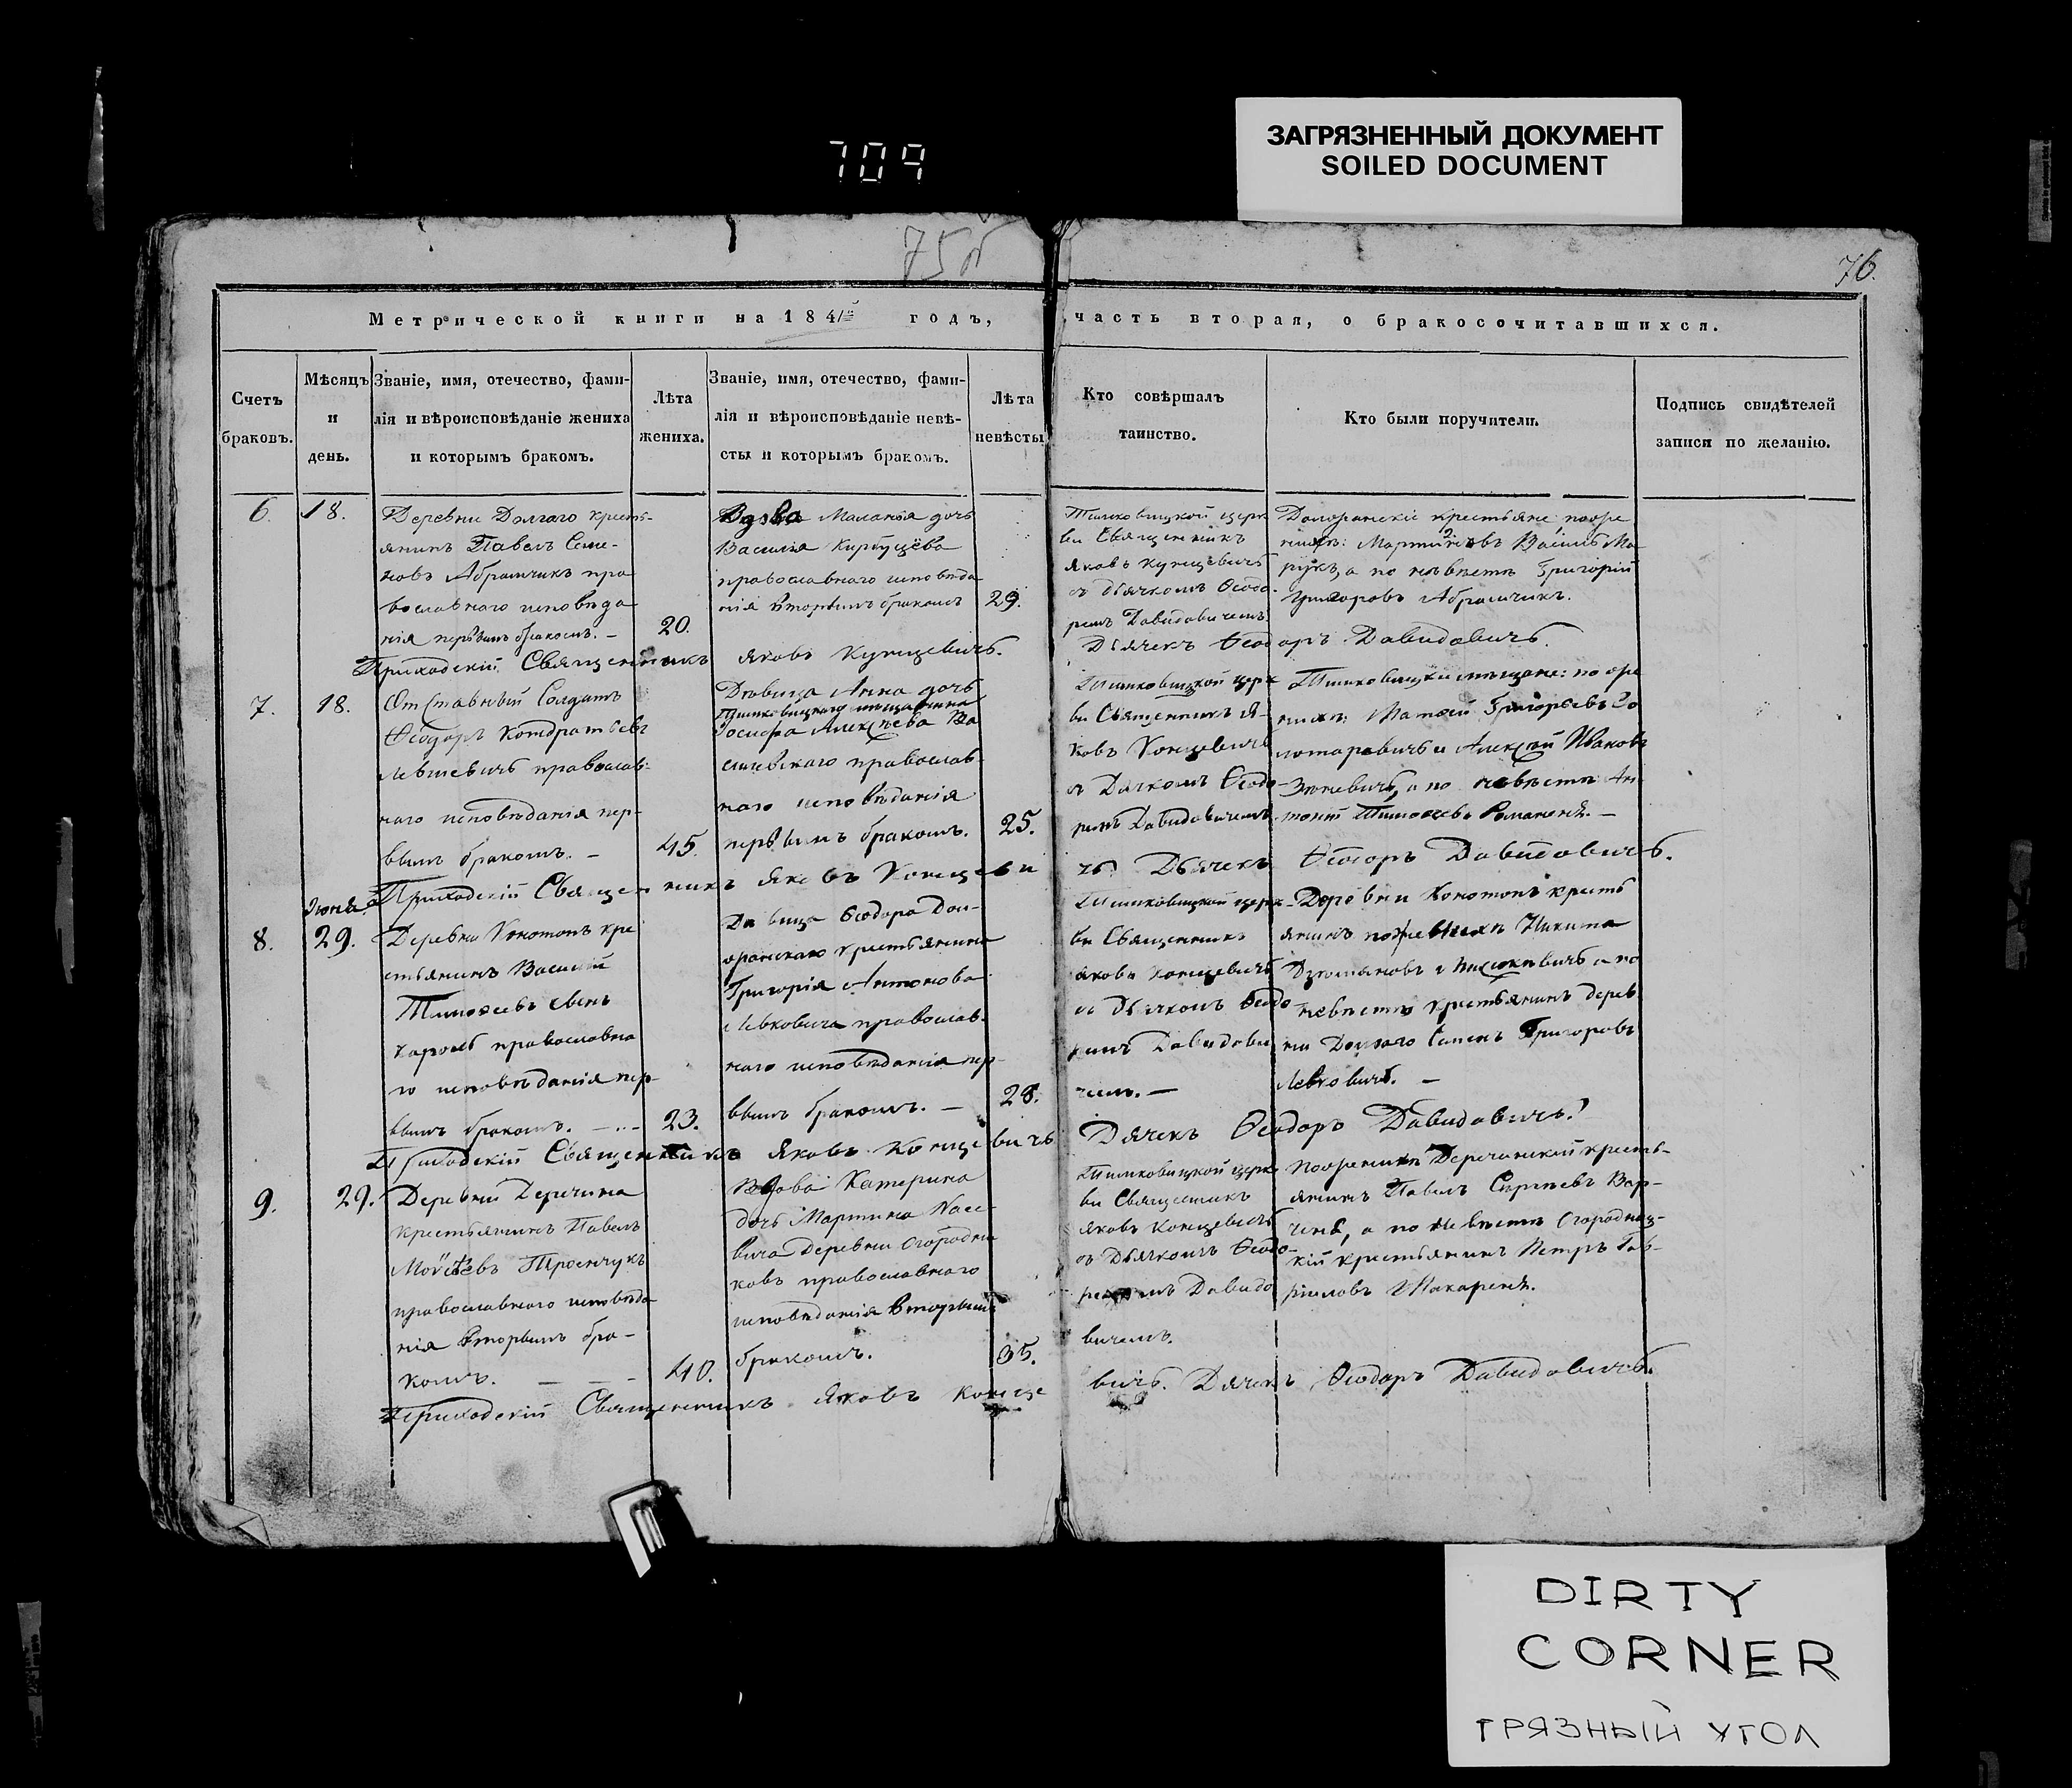 709
ЗАГРЯЗНЕННЫЙ ДОКУМЕНТ
SOILED DOCUMENT
75об
76.
Метрической книги на 1841й годъ, часть вторая, о бракосочитавшихся.
Счетъ браковъ.
Мѣсяцъ и день.
Званіе, имя, отечество, фамилія и вѣроисповѣданіе жениха и которымъ бракомъ.
Лѣта жениха.
Званіе, имя, отечество, фамилія и вѣроисповѣданіе невѣсты и которымъ бракомъ.
Лѣта невѣсты
Кто совѣршалъ таинство.
Кто были поручители.
Подпись свидѣтелей записи по желанію.
6.
18.
Деревни Долгаго кресть-
янинъ Павелъ Семе-
новъ Абрамчикъ пра
вославнаго исповѣда
нія первымъ бракомъ. –
20.
Вдова Маланія дочь
Василія
православнаго исповѣда
нія вторымъ бракомъ
29.
Тимковицкой церк
ви Священникъ
Яковъ Кунцевичъ
съ дьячкомъ Ѳеодо-
ромъ Давидовичемъ
крестьяне по
Василь Ма
рукъ, а по невѣстѣ Григорій
Григоровъ Абрамчикъ.
Приходскій Священникъ Яковъ Кунцевичъ.
Дьячекъ Ѳеодоръ Давидовичъ.
7.
18.
Отставный Солдатъ
Ѳеодоръ Кондратьевъ
православ-
наго исповѣданія пер-
вымъ бракомъ. –
45.
Дѣвица Анна дочь
Тимковицкаго мѣщанина
Іосифа Алексѣева Ва
силевскаго православ-
наго исповѣданія
первымъ бракомъ.
25.
Тимковицкой церк
ви Священникъ Я-
ковъ Концевичъ
съ Дячкомъ Ѳеодо-
ромъ Давидовичемъ
Тимковицкіи мѣщане: по
Матвей Григорьевъ
и Алексѣй Ивановъ
а по невѣстѣ Ан
тоній Тимоѳеевъ Романеня. –
Приходскій Священникъ Яковъ Концеви
чъ. Дьячекъ Ѳеодоръ Давидовичъ.
Іюня
8.
29.
Деревни Конотопъ кре
стьянинъ Василій
Тимоѳеевъ сынъ
Король православна
го исповѣданія пер-
вымъ бракомъ. –
23.
Дѣвица Ѳеодора Дол-
крестьянина
Григорія Антонова
Левковича православ-
наго исповѣданія пер-
вымъ бракомъ. –
28.
Тимковицкой церк-
ви Священникъ
Яковъ Концевичъ
съ Дьячкомъ Ѳеодо
ромъ Давидови
чемъ. –
Деревни Конотопъ кресть
янинъ Никита
а по
невѣстѣ крестьянинъ дерев
ни Долгаго Григоровъ
Левковичъ. –
Приходскій Священникъ Яковъ Концевичъ
Дячекъ Ѳеодоръ Давидовичъ.
9.
29.
Деревни Деречина
крестьянинъ Павелъ
Троянчукъ
православнаго исповѣда
нія вторымъ бра-
комъ. – – –
40.
Вдова Катерина
дочь Мартина
деревни Огородни
ковъ православнаго
исповѣданія вторымъ
бракомъ.
35.
Тимковицкой церк
ви Священникъ
Яковъ Концевичъ
съ Дьячкомъ Ѳеодо-
ромъ Давидо
вичемъ.
Деречинскій кресть-
янинъ Павелъ Сергѣевъ Вар-
а по невѣстѣ Огородниц-
кій крестьянинъ Петръ Гав-
риловъ Макареня.
Приходскій Священникъ Яковъ Конце
вичъ. Дячекъ Ѳеодоръ Давидовичъ.
DIRTY
CORNER
ГРЯЗНЫЙ УГОЛ